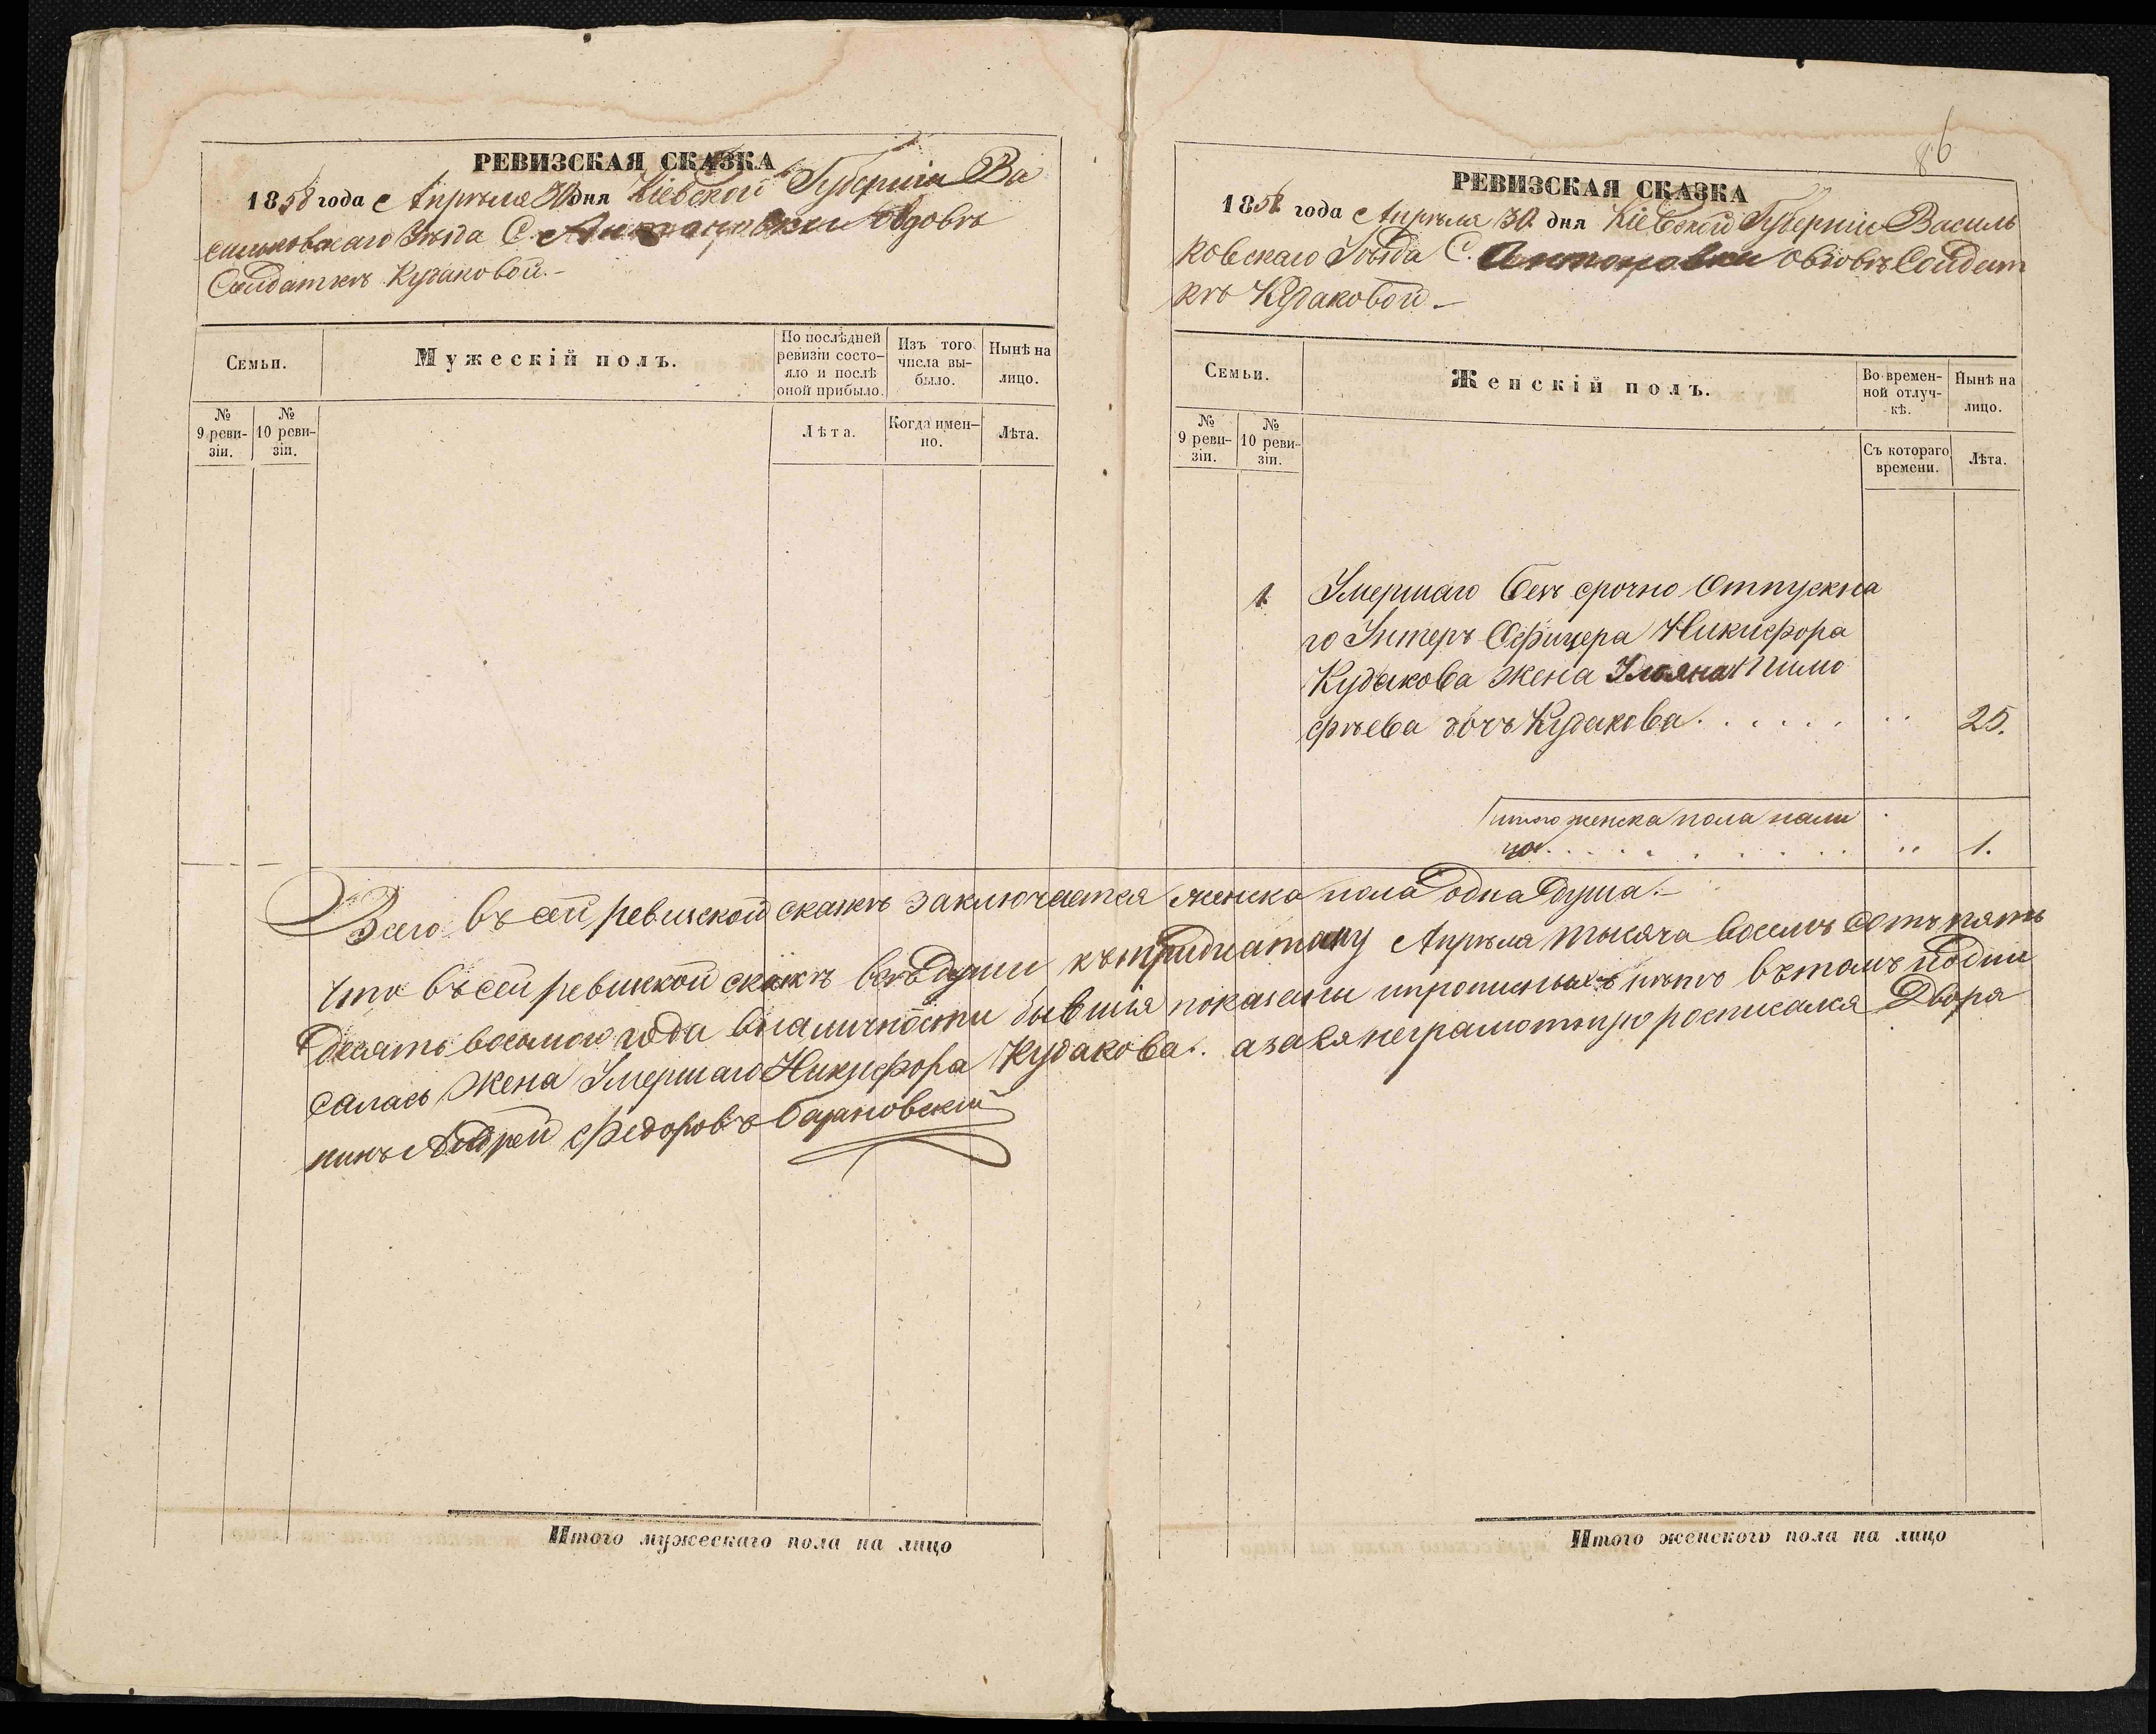 РЕВИЗСКАЯ СКАЗКА
1858 года Апрѣля 30 дня Кіевской Губерніи Ва
сильковскаго Уѣзда С. Антоновки о вдовѣ
Солдаткѣ Кудаковой. –
Семьи.
Мужескій полъ.
По послѣдней
ревизіи состо-
яло и послѣ
оной прибыло.
Изъ того
числа вы-
было.
Нынѣ на
лицо.
№
9 реви-
зіи.
№
10 реви-
зіи.
Лѣта.
Когда имен-
но.
Лѣта.
86
РЕВИЗСКАЯ СКАЗКА
1858 года Апрѣля 30. дня Кіевской Губерніи Василь
ковскаго Уѣзда С. Антоновки о вдовѣ Солдат
кѣ Кудаковой –
Семьи.
Женскій полъ.
Во времен-
ной отлуч-
кѣ.
Нынѣ на
лицо.
№
9 реви-
зіи.
№
10 реви-
зіи.
Съ котораго
времени.
Лѣта.
1. Умершаго безъ срочно Отпускна
го Унтеръ Офицера Никифора
Кудакова жена Ульяна Тимо
фѣева дочь Кудакова . . . . . . 25.
итого женска пола нали
цо . . . . . . . . 1.
Всего въ сей ревизской сказкѣ заключается женска пола одна Душа. –
Что въ сей ревизской сказкѣ всѣ Души къ тридцатому Апрѣля тысяча восемь сотъ пять
десятъ восьмого года вналичности бывшія показаны ипрописныхъ нѣтъ вътомъ подпи
салась Жена Умершаго Никифора Кудакова. а за ея неграмотную росписался Дворя
нинъ Андрей Федоровъ Барановскій
Итого мужескаго пола на лицо
Итого женскаго пола на лицо